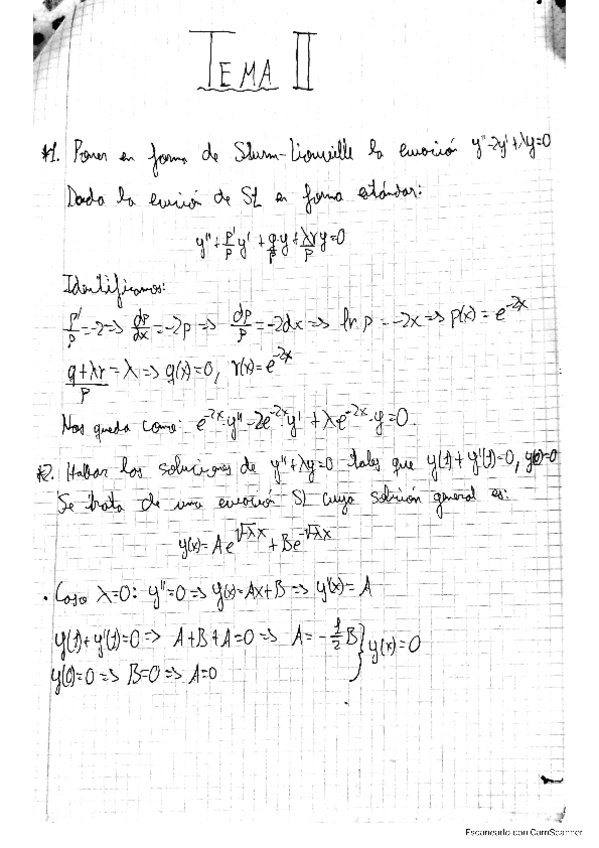 TEMA II
*1. Poner en forma de Sturm-Liouville la ecuación y''-2y'+λy=0
Dada la ecuación de SL en forma estándar:
y''+p'/p y'+q/p y+λr/p y=0
Identificamos:
p'/p=-2=>dp/dx=-2p=>dp/p=-2dx=>ln p=-2x=>p(x)=e^-2x
q+λr/p=λ=>q(x)=0, r(x)=e^-2x
Nos queda como: e^-2x·y''-2e^-2x y'+λe^-2x·y=0
*2. Hallar las soluciones de y''+λy=0 tales que y(1)+y'(1)=0, y(0)=0
Se trata de una ecuación SL cuya solución general es:
y(x)=Ae^√-λx+Be^-√-λx
• Caso λ=0: y''=0=>y(x)=Ax+B=>y'(x)=A
y(1)+y'(1)=0=>A+B+A=0=>A=-1/2B } y(x)=0
y(0)=0=>B=0=>A=0
Escaneado con CamScanner